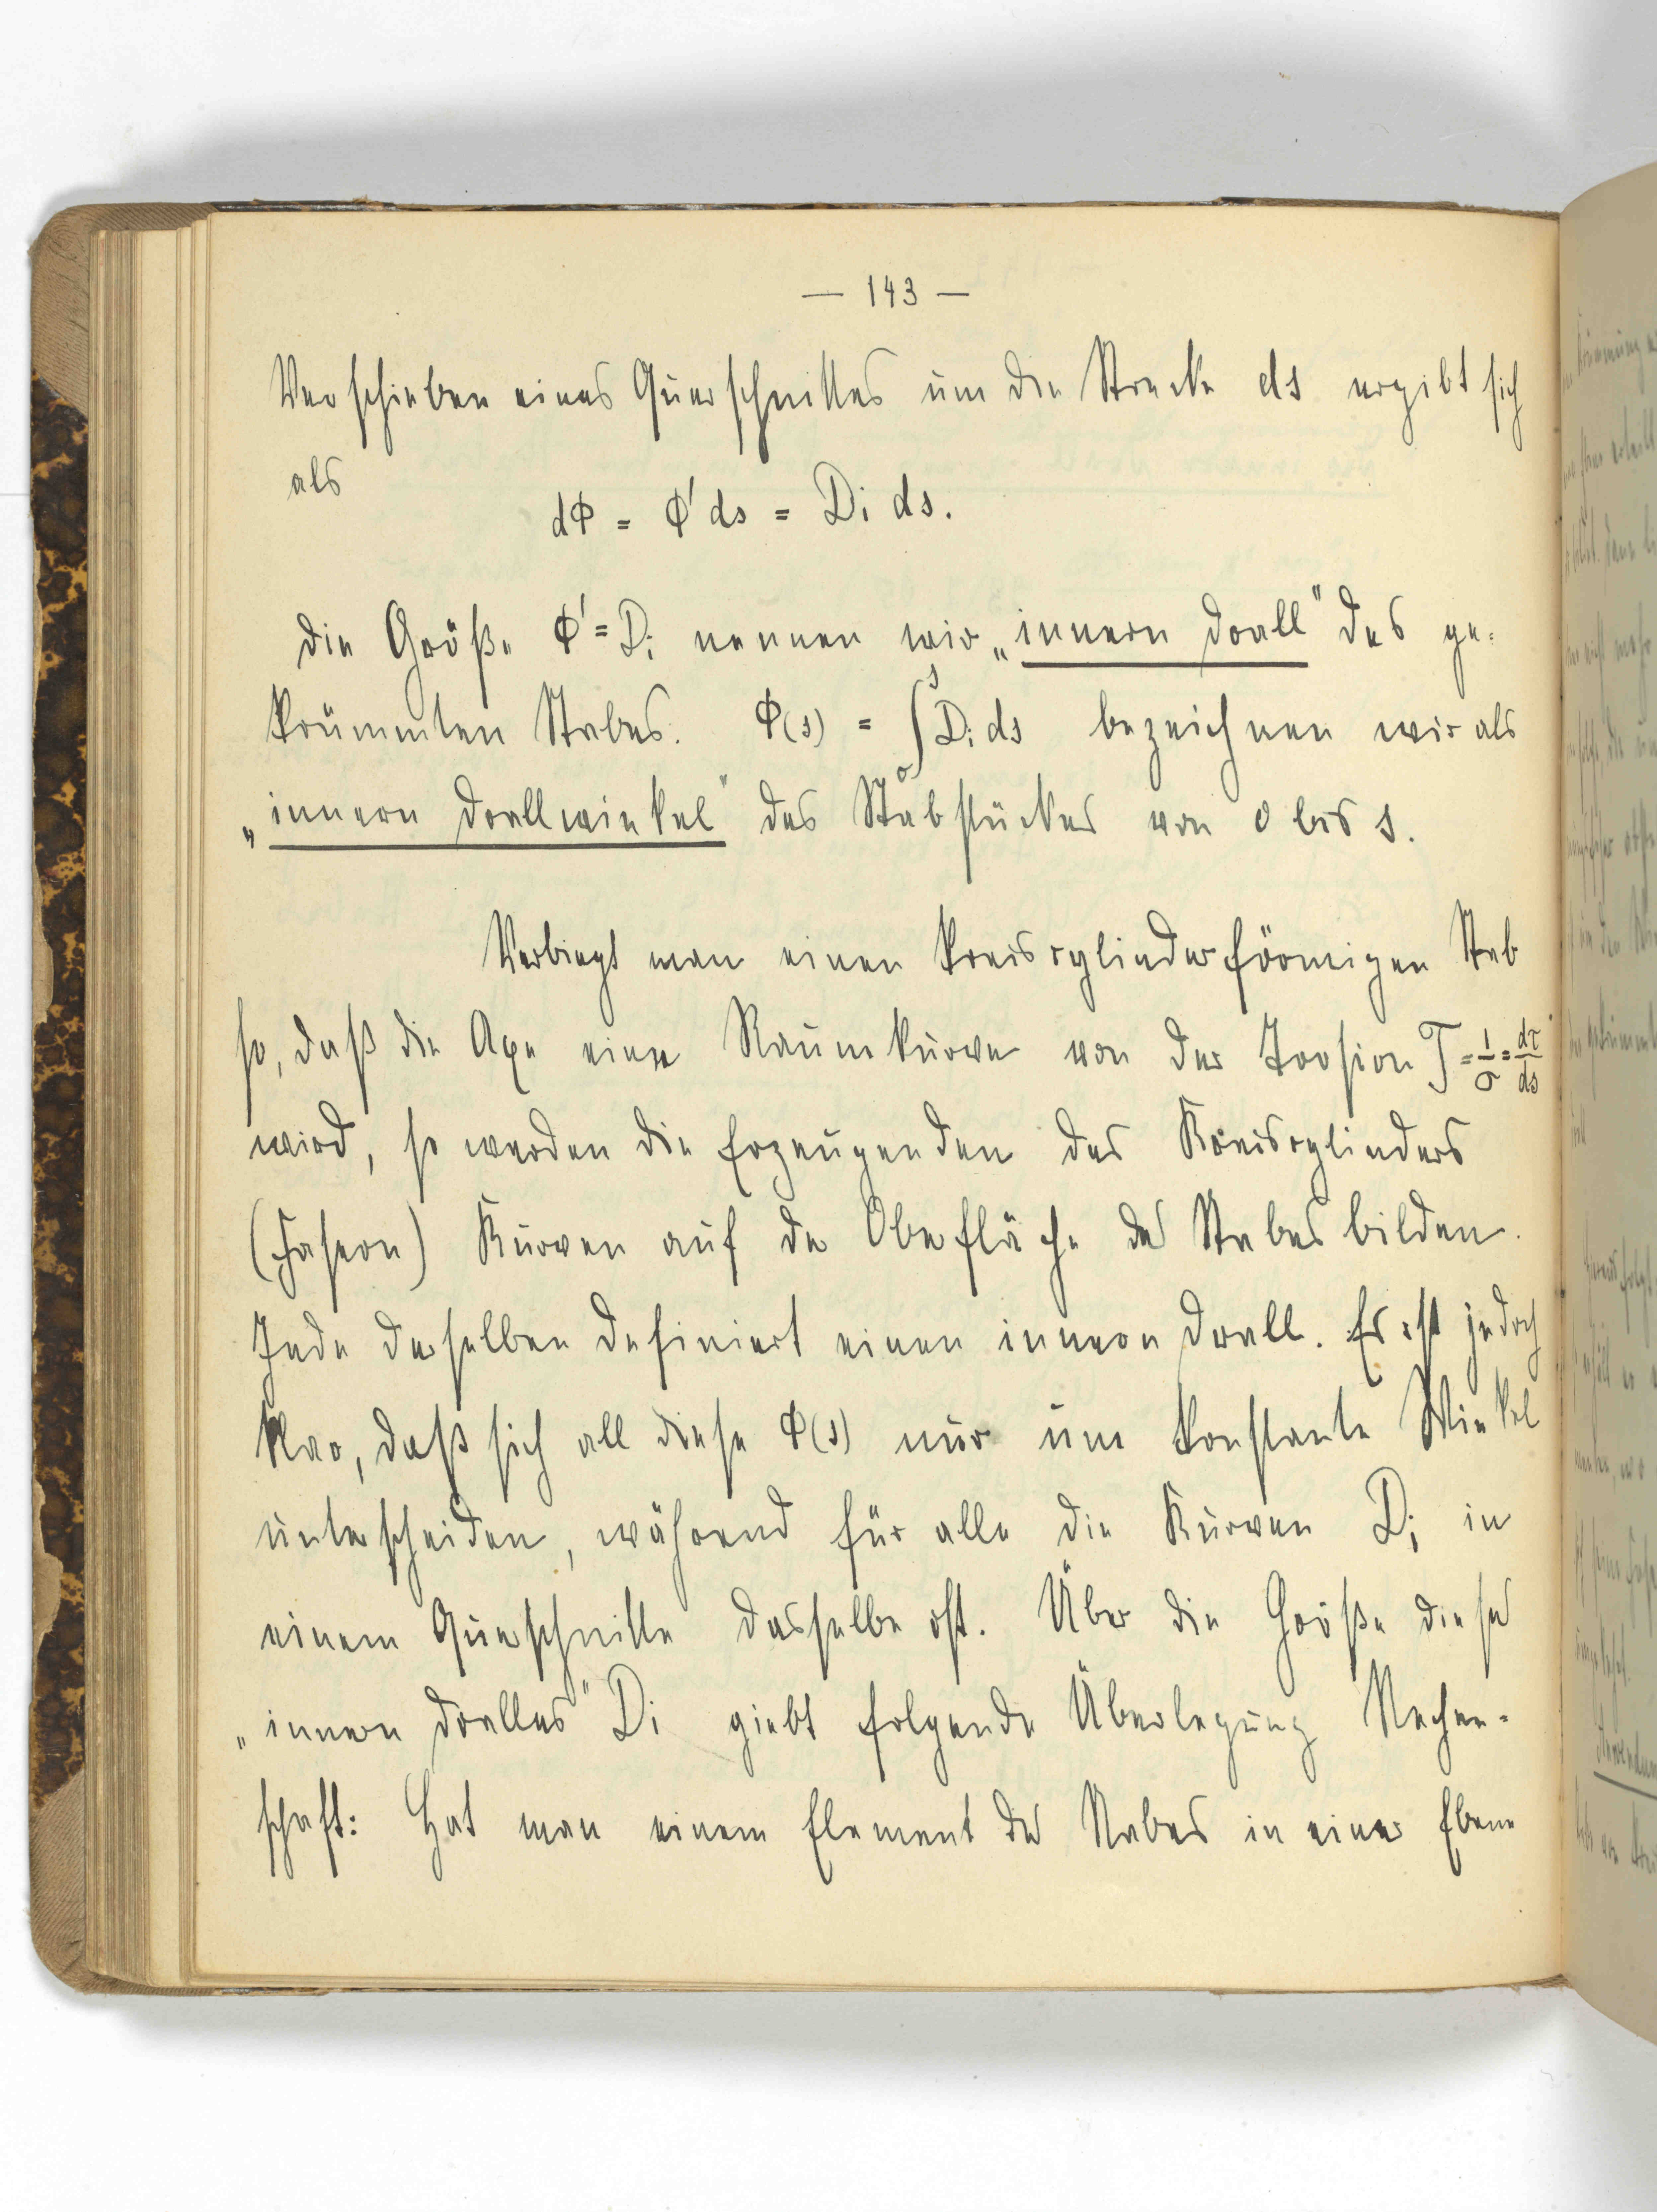 — 143 —
Verschieben eines Querschnittes um die Strecke ds ergibt sich
als
dΦ = Φ' ds = Di ds.
Die Größe Φ' = Di nennen wir „innern Drall" des ge-
krümmten Stabes. Φ(s) = ∫₀ˢ Di ds bezeichnen wir als
„innern Drallwinkel" des Stabstückes von 0 bis s.
Verbiegt man einen kreiscylinderförmigen Stab
so, daß die Axe eine Raumkurve von der Torsion T = 1/σ = dτ/ds
wird, so werden die Erzeugenden des Kreiscylinders
(Fasern) Kurven auf der Oberfläche des Stabes bilden.
Jede derselben definiert einen innern Drall. Es ist jedoch
klar, daß sich all diese Φ(s) nur um konstante Winkel
unterscheiden, während für alle die Kurven Di in
einem Querschnitte dasselbe ist. Über die Größe dieses
„innern Dralles" Di giebt folgende Überlegung Rechen-
schaft: Hat man einem Element des Stabes in einer Ebene